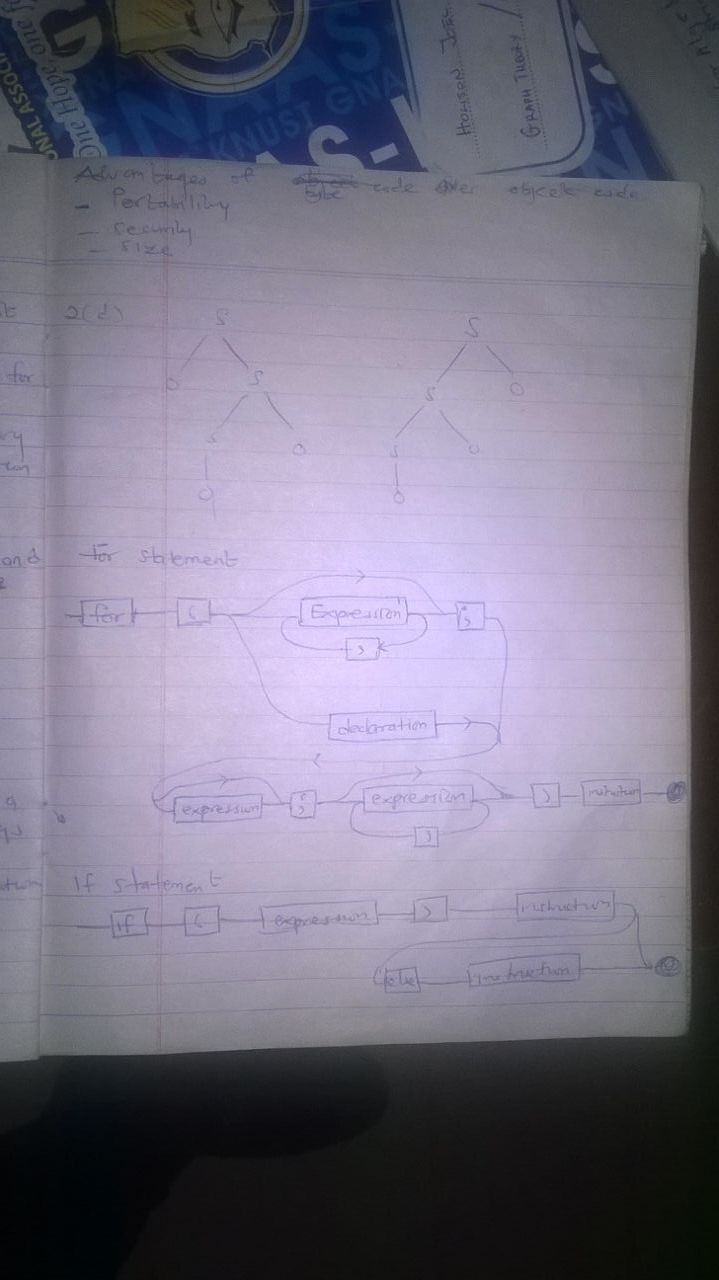 One Hope, one
ONAL ASSOC
GNAAS
KNUST GNA
AS-
HOMSON JOE
GRAPH THEORY
Advantages of byte code over object code
- Portability
- security
- size
2(d)
S S
O S S O
S O S O
O O
for
and
for statement
for ( Expression ;
,
declaration
expression ; expression ) instruction
,
If statement
if ( expression ) instruction
else instruction